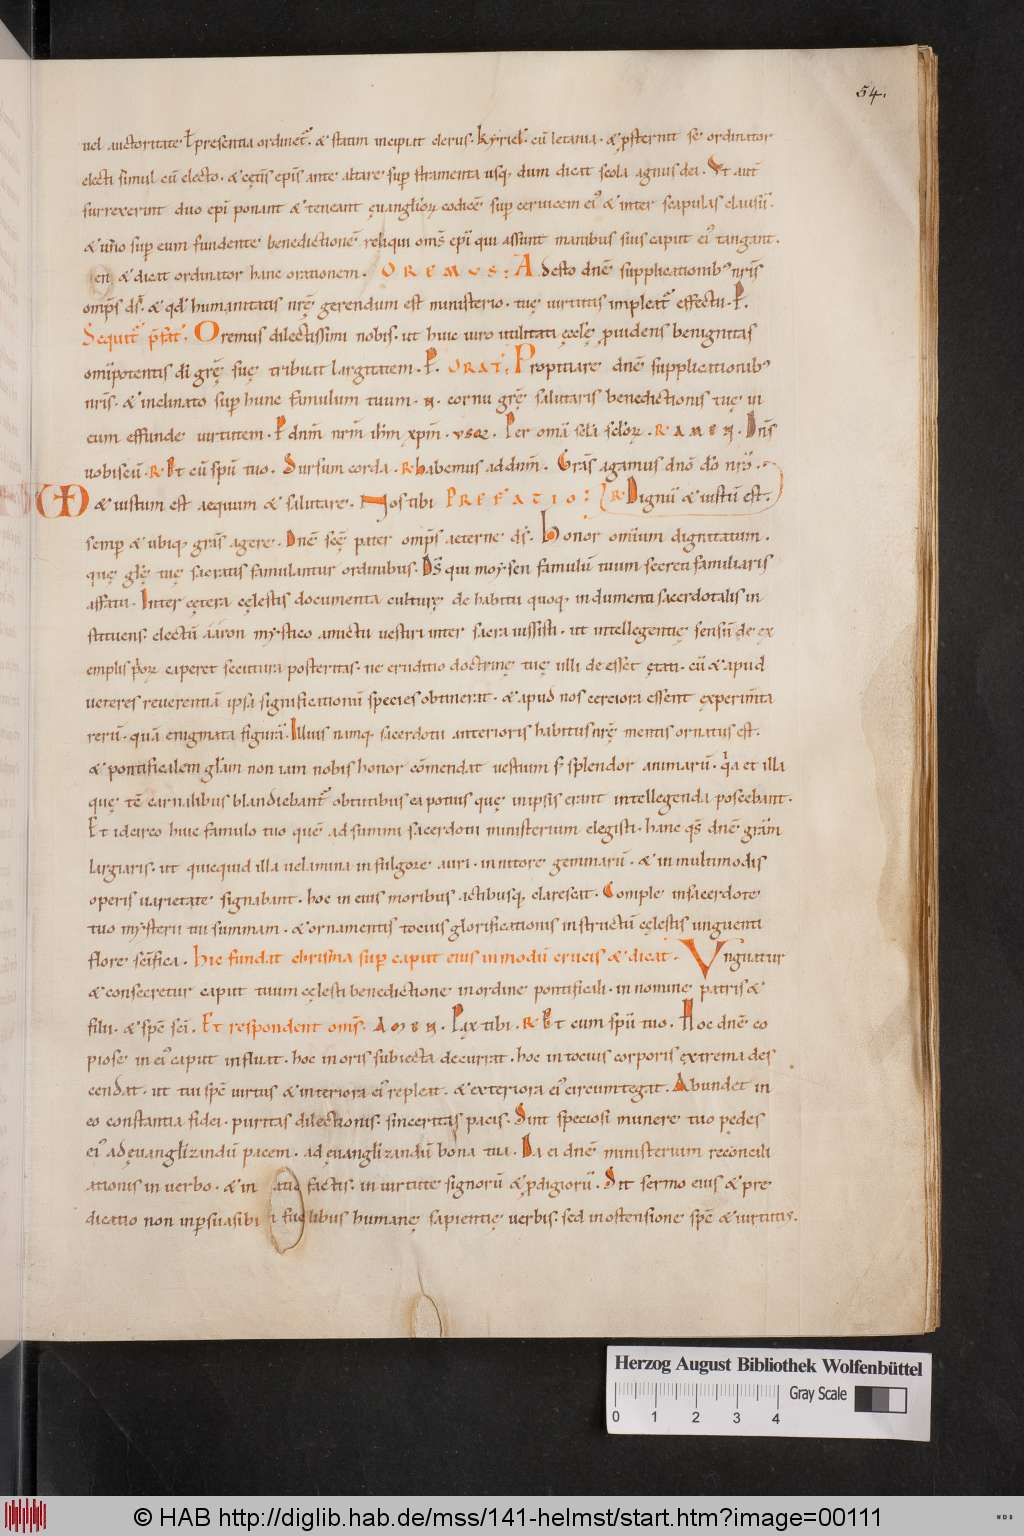 54.
uel auctoritate ł presentia ordinet᷑. & statim incipiat clerus. kyriel᷑. cū letania. & psternit se ordinator
electi simul cū electo. & cęt̄is ep̄is ante altare sup̱ stramenta usq; dum dicat scola agnus dei. Vt aut̄
surrexerint duo ep̄i ponant & teneant ęuanglior̄ codicē sup̱ ceruicem ei᷒ & inter scapulas clausū.
& uno sup̱ eum fundente benedictionē reliqui om̄s ep̄i qui assunt manibus suis caput ei᷒ tangant.
& dicat ordinator hanc orationem. OREMVS: Adesto dn̄e supplicationib᷒ nr̄is
omp̄s ds̄. & qd̄ humanitatis nr̄ę gerendum est ministerio. tuę uirtutis impleat᷑ effectu. P̱.
Sequit᷑ p̄fat̄. Oremus dilectissimi nobis. ut huic uiro utilitati ęcclę̄ ꝓuidens benignitas
omīpotentis dī grę̄ suę tribuat largitatem. P̱. ORAT̄: Propitiare dn̄e supplicationib᷒
nr̄is. & inclinato sup̱ hunc famulum tuum. N. cornu grę̄ salutaris benedictionis tuę in
eum effunde uirtutem. P̱ dnm̄ nrm̄ ihm̄ xpm̄. vsqꝫ. Per omā scl̄a scl̄oꝝ. R AMEN. Dn̄s
uobiscū. R Et cū spū tuo. Sursum corda. R habemus ad dnm̄. Grās agamus dn̄o dō nr̄o.
& iustum est aequum & salutare. Nos tibi PREFATIO: R Dignū & iustū est.
semp̱ & ubiq; grās agere. Dn̄e scē pater omp̄s aeterne ds̄. honor omīum dignitatum.
quę glę̄ tuę sacratis famulantur ordinibus. Ds̄ qui moysen famulū tuum secreti familiaris
affatu. Inter cętera cęlestis documenta culturę de habitu quoq; indumenti sacerdotalis in
stituens. electū aaron mystico amictu uestiri inter sacra iussisti. ut intellegentię sensū de ex
emplis p̄oꝝ caperet secutura posteritas. ne eruditio doctrinę tuę ulli deesset ętati. cū & apud
ueteres reuerentiā ipsa significationū species obtinerat. & apud nos certiora essent experim̄ta
rerū. quā enigmata figurā. Illius namq; sacerdotii anterioris habitus nr̄ę mentis ornatus est.
& pontificalem glām non iam nobis honor cōmendat uestium s; splendor animarū. quia et illa
quę tē carnalibus blandiebant᷑ obtutibus ea potius quę in ipsis erant intellegenda poscebant.
Et idcirco huic famulo tuo quē ad summi sacerdotii ministerium elegisti. hanc qs̄ dn̄e grām
largiaris. ut quicquid illa uelamina in fulgore auri. in nitore gemmarū. & in multimodis
operis uarietate signabant. hoc in eius moribus actibusq; clarescat. Comple in sacerdote
tuo mysterii tui summam. & ornamentis tocius glorificationis instructū cęlestis unguenti
flore scīfica. hic fundat chrisma sup̱ caput eius in modū crucis & dicat. Vnguatur
& consecretur caput tuum cęlesti benedictione in ordine pontificali. in nomine patris &
filii. & spē scī. Et respondent om̄s. AMEN. Pax tibi. R Et cum spū tuo. Hoc dn̄e co
piose in ei᷒ caput influat. hoc in oris subiecta decurrat. hoc in tocius corporis extrema des
cendat. ut tui spē uirtus & interiora ei᷒ repleat. & exteriora ei᷒ circumtegat. Abundet in
eo constantia fidei. puritas dilectionis. sinceritas pacis. Sint speciosi munere tuo pędes
ei᷒ ad ęuanglizandū pacem. ad ęuanglizandū bona tua. Da ei dn̄e ministerium reconcili
ationis in uerbo. & in factis. in uirtute signorū & ꝓdigiorū. Sit sermo eius & pre
dicatio non in p̱suasibilibus humanę sapientię uerbis. sed in ostensione spē & uirtutis.
Herzog August Bibliothek Wolfenbüttel
Gray Scale
0 1 2 3 4
© HAB http://diglib.hab.de/mss/141-helmst/start.htm?image=00111